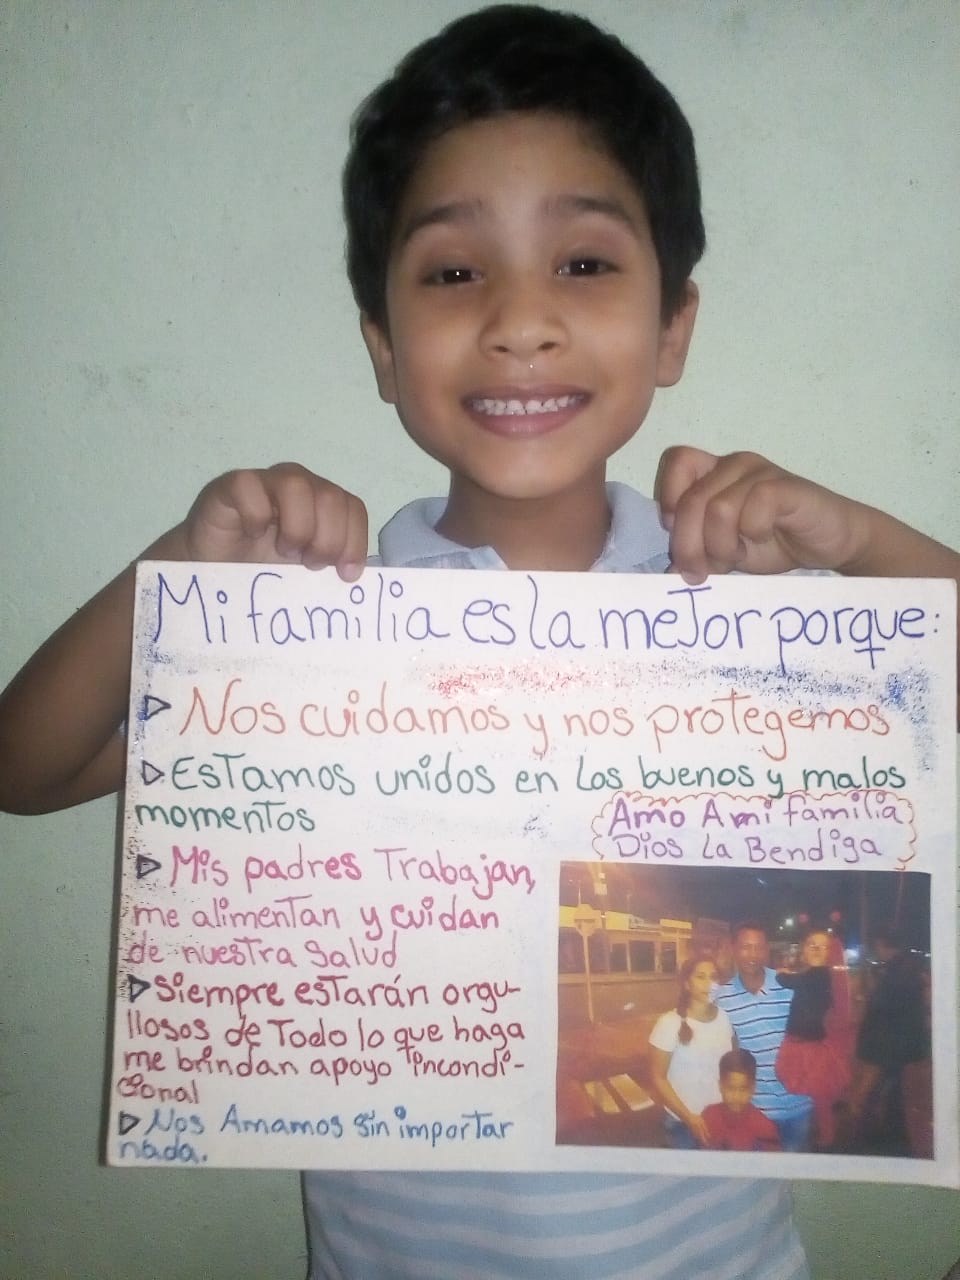 Mi familia es la meJor porque:
Nos cuidamos y nos protegemos
EsTamos unidos en Los buenos y malos
momenTos
Amo A mi familia
Dios La Bendiga
Mis padres Trabajan,
me alimenTan y cuidan
de nuesTra Salud
Siempre esTarán orgu-
llosos de Todo lo que haga
me brindan apoyo incondi-
cional
Nos Amamos Sin importar
nada.